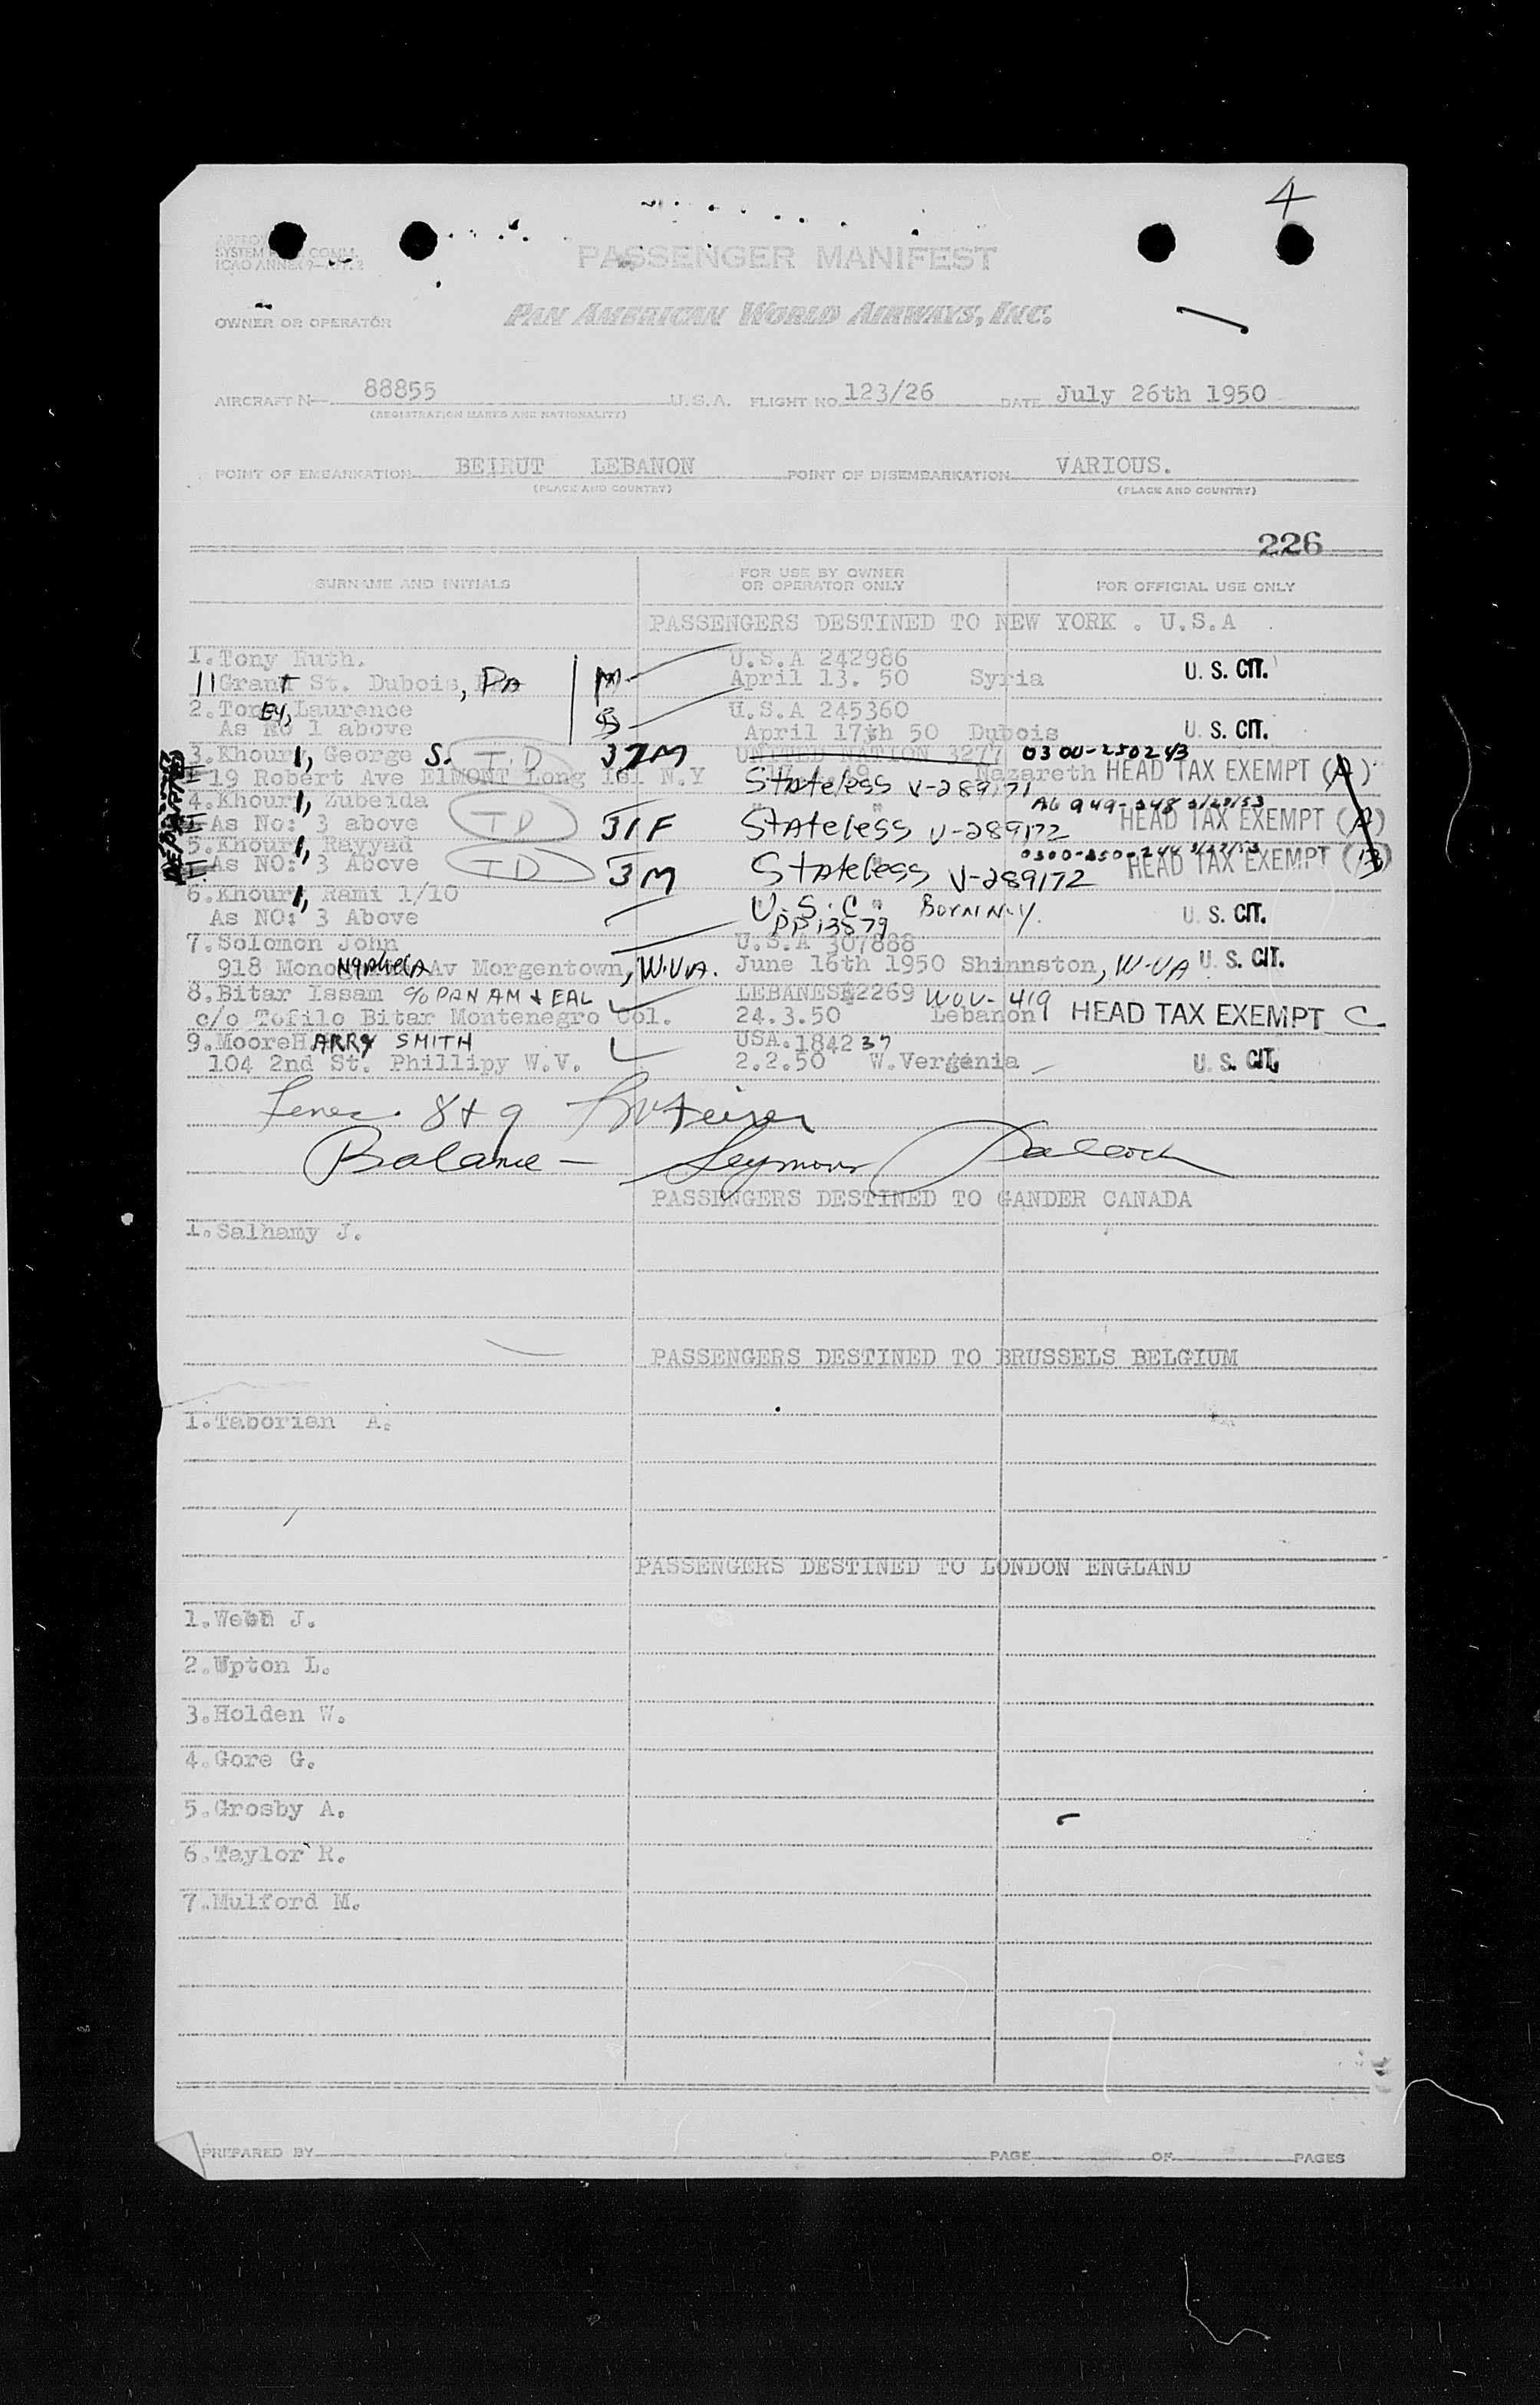 4
SYSTEM COMM.
ICAO ANNEX 9
PASSENGER MANIFEST
OWNER OR OPERATOR PAN AMERICAN WORLD AIRWAYS, INC.
AIRCRAFT N— 88855 U.S.A. FLIGHT NO. 123/26 DATE July 26th 1950
(REGISTRATION MARKS AND NATIONALITY)
POINT OF EMBARKATION BEIRUT LEBANON POINT OF DISEMBARKATION VARIOUS.
(PLACE AND COUNTRY) (PLACE AND COUNTRY)
226
SURNAME AND INITIALS FOR USE BY OWNER OR OPERATOR ONLY FOR OFFICIAL USE ONLY
PASSENGERS DESTINED TO NEW YORK . U.S.A
1. Tony Ruth. U.S.A 242986
11 Grant St. Dubois, PA M April 13. 50 Syria U. S. CIT.
2. Toney, Laurence U.S.A 245360
As No 1 above S April 17th 50 Dubois U. S. CIT.
3. Khouri, George S. T.D 37M UNITED NATION 3277 0300-250243
19 Robert Ave ElMONT Long Isl N.Y Stateless V-289171 Nazareth HEAD TAX EXEMPT (A)
4. Khouri, Zubeida A6 949-248
As No: 3 above T D 31F Stateless V-289172 HEAD TAX EXEMPT
5. Khouri, Rayyad 0300-250-244
As NO: 3 Above T D 3M Stateless V-289172 HEAD TAX EXEMPT
6. Khouri, Rami 1/10 U.S.C. Born N.Y.
As NO: 3 Above PP 13879 U. S. CIT.
7. Solomon John U.S.A 307888
918 Monongahela Av Morgentown, W.VA. June 16th 1950 Shinnston, W-VA U. S. CIT.
8. Bitar Issam c/o PAN AM & EAL LEBANESE 2269 WOV-419
c/o Tofilo Bitar Montenegro Col. 24.3.50 Lebanon HEAD TAX EXEMPT C
9. Moore HARRY SMITH USA. 184237
104 2nd St. Phillipy W.V. 2.2.50 W.Vergenia U. S. CIT.
8 + 9
Balance — Seymour
PASSENGERS DESTINED TO GANDER CANADA
1. Salhamy J.
PASSENGERS DESTINED TO BRUSSELS BELGIUM
1. Taborian A.
PASSENGERS DESTINED TO LONDON ENGLAND
1. Webb J.
2. Upton L.
3. Holden W.
4. Gore G.
5. Grosby A.
6. Taylor R.
7. Mulford M.
PREPARED BY PAGE OF PAGES